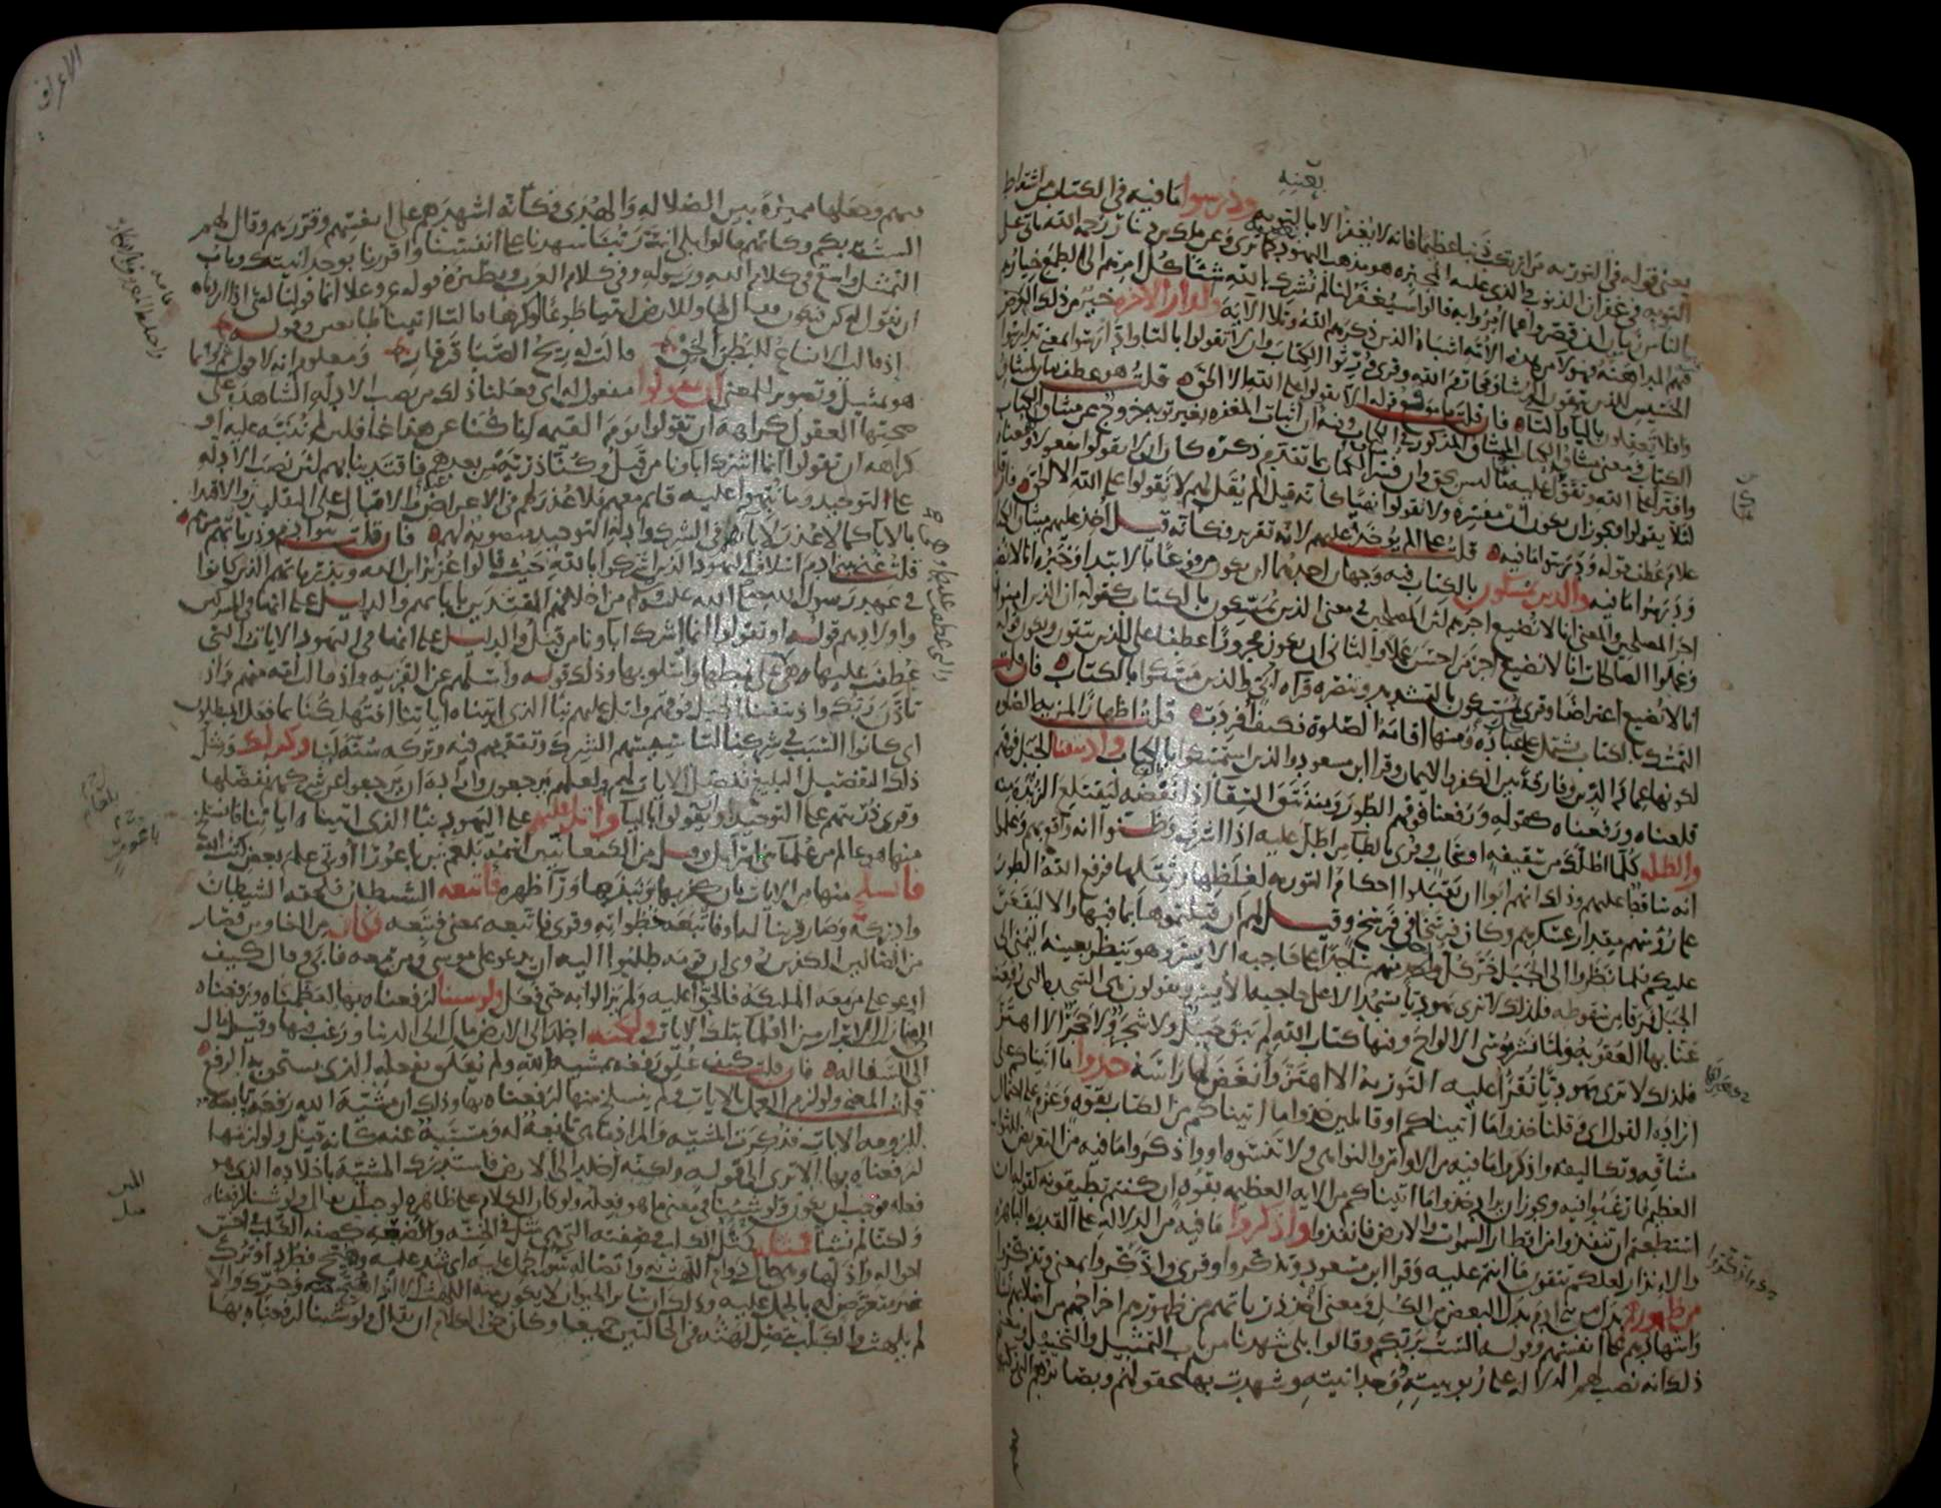 بعينه
يعني قوله في التوراة من ارتكب ذنبا عظيما فانه لا يغفر الا بالتوبه ودرسوا ما فيه في الكتاب من اشتراط
التوبه في غفران الذنوب والذي عليه المجبره هو مذهب اليهود كما ترى وعن ملك بن دينار رحمه الله ياتي على
الناس زمان ان قصروا عما امروا به قالوا سيغفر لنا لم نشرك بالله شيئا كل امرهم الى الطمع خيارهم
فيهم المداهنه فهؤلاء من هذه الامه اشباه الذين ذكرهم الله وتلا الآية والدار الآخره خير من ذلك العرض
الخسيس للذين يتقون الرشا ومحارم الله وقرئ ورثوا الكتاب وان لا تقولوا بالتا وادارسوا بمعنى تدارسوا
وافلا تعقلون باليا والتاء فان قلت ما موقع قوله الا يقولوا على الله الا الحق قلت هو عطف بيان لميثاق
الكتاب ومعنى ميثاق الكتاب الميثاق المذكور في الكتاب وفيه ان اثبات المغفره بغير توبه خروج عن ميثاق الكتاب
وافتراء على الله وتقول عليه ما ليس بحق وان فسر ميثاق الكتاب بما تقدم ذكره كان ان لا يقولوا مفعولا له ومعناه
لئلا يقولوا ويجوز ان يكون ان مفسره ولا تقولوا نهيا كانه قيل الم يقل لهم لا تقولوا على الله الا الحق فان قلت
علام عطف قوله ودرسوا ما فيه قلت على الم يؤخذ عليهم لانه تقرير فكانه قيل اخذ عليهم ميثاق الكتاب
ودرسوا ما فيه والذين يمسكون بالكتاب فيه وجهان احدهما ان يكون مرفوعا بالابتدا وخبره انا لا نضيع
اجر المصلحين والمعنى انا لا نضيع اجرهم لان المصلحين في معنى الذين يمسكون بالكتاب كقوله ان الذين امنوا
وعملوا الصالحات انا لا نضيع اجر من احسن عملا والثاني ان يكون مجرورا عطفا على الذين يتقون ويكون قوله
انا لا نضيع اعتراضا وقرئ يمسكون بالتشديد وتنصره قراه ابي والذين مسكوا بالكتاب فان قلت
التمسك بالكتاب يشتمل على كل عباده ومنها اقامة الصلوة فكيف افردت قلت اظهارا لمزية الصلوة
لكونها عماد الدين وفارقة بين الكفر والايمان وقرا ابن مسعود والذين استمسكوا بالكتاب واذ نتقنا الجبل فوقهم
قلعناه ورفعناه كقوله ورفعنا فوقهم الطور ومنه نتق السقاء اذا نفضه ليقتلع الزبدة منه
والظلة كل ما اظلك من سقيفة او سحاب وقرئ بالطاء من اطل عليه اذا اشرف وظنوا انه واقع بهم وعلموا
انه ساقط عليهم وذلك انهم ابوا ان يقبلوا احكام التوريه لغلظها وثقلها فرفع الله الطور
على رؤسهم مقدار عسكرهم وكان فرسخا في فرسخ وقيل لهم ان قبلتموها بما فيها والا ليقعن
عليكم فلما نظروا الى الجبل خر كل رجل منهم ساجدا على حاجبه الايسر وهو ينظر بعينه اليمنى الى
الجبل فرقا من سقوطه فلذلك لا ترى يهوديا يسجد الا على حاجبه الايسر ويقولون هي السجدة التي رفعت
عنا بها العقوبة ولما نشر موسى الالواح وفيها كتاب الله لم يبق جبل ولا شجر ولا حجر الا اهتز
فلذلك لا ترى يهوديا تقرأ عليه التوريه الا اهتز وانغض لها راسه خذوا ما اتيناكم على
ارادة القول اي وقلنا خذوا ما اتيناكم او قائلين خذوا ما اتيناكم من الكتاب بقوة وعزم على احتمال
مشاقه وتكاليفه واذكروا ما فيه من الاوامر والنواهي ولا تنسوه او واذكروا ما فيه من التعريض للثواب
العظيم فارغبوا فيه ويجوز ان يراد خذوا ما اتيناكم من الايه العظيمه بقوة ان كنتم تطيقونه كقوله ان
استطعتم ان تنفذوا من اقطار السموات والارض فانفذوا واذكروا ما فيه من الدلالة على القدرة الباهرة
والانذار لعلكم تتقون ما انتم عليه وقرا ابن مسعود وتذكروا وقرئ واذكروا بمعنى وتذكروا
من ظهورهم بدل من بني ادم بدل البعض من الكل ومعنى اخذ ذرياتهم من ظهورهم اخراجهم من اصلابهم نسلا
واشهادهم على انفسهم وقوله الست بربكم وقالوا بلى شهدنا من باب التمثيل والتخييل ومعنى
ذلك انه نصب لهم الدلالة على ربوبيته ووحدانيته وشهدت بها عقولهم وبصائرهم التي ركبها
الاعراف
فيهم وجعلها مميزة بين الضلاله والهدى فكانه اشهدهم على انفسهم وقررهم وقال لهم
الست بربكم وكانهم قالوا بلى انت ربنا شهدنا على انفسنا واقررنا بوحدانيتك وباب
التمثيل واسع في كلام الله ورسوله وفي كلام العرب ونظيره قوله عز وعلا انما قولنا لشئ اذا اردناه
ان نقول له كن فيكون فقال لها وللارض ائتيا طوعا او كرها قالتا اتينا طائعين وقوله
اذ قالت الانساع للبطن الحق قالت له ريح الصبا قرقار ومعلوم انه لا قول ثم وانما
هو تمثيل وتصوير للمعنى ان تقولوا مفعول له اي فعلنا ذلك من نصب الادلة الشاهدة على
صحتها العقول كراهة ان تقولوا يوم القيمه انا كنا عن هذا غافلين لم ننبه عليه او
كراهة ان تقولوا انما اشرك اباؤنا من قبل وكنا ذرية من بعدهم فاقتدينا بهم لان نصب الادلة
على التوحيد وما نبهوا عليه قائم معهم فلا عذر لهم في الاعراض عنه والاقبال على التقليد والاقتدا
بالابا كما لا عذر لابائهم في الشرك وادلة التوحيد منصوبة لهم فان قلت بنو ادم وذرياتهم من هم
قلت عنى ببني ادم اسلاف اليهود الذين اشركوا بالله حيث قالوا عزير ابن الله وبذرياتهم الذين كانوا
في عهد رسول الله صلى الله عليه وسلم من اخلافهم المقتدين بابائهم والدليل على انها في المشركين
واولادهم قوله او تقولوا انما اشرك اباؤنا من قبل والدليل على انها في اليهود الايات التي
عطفت عليها هي والتي عطفت عليها وهي على نمطها واسلوبها وذلك قوله واسئلهم عن القرية واذ قالت امة منهم واذ
تاذن ربك واذ نتقنا الجبل فوقهم واتل عليهم نبا الذي اتيناه اياتنا افتهلكنا بما فعل المبطلون
اي كانوا السبب في شركنا لتاسيسهم الشرك وتقدمهم فيه وتركه سنة لنا وكذلك ومثل
ذلك التفصيل البليغ نفصل الايات لهم ولعلهم يرجعون وارادة ان يرجعوا عن شركهم نفصلها
وقرئ ذريتهم على التوحيد وان يقولوا باليا واتل عليهم على اليهود نبا الذي اتيناه اياتنا فانسلخ
منها هو عالم من علما بني اسرائيل وقيل من الكنعانيين اسمه بلعم بن باعورا اوتي علم بعض كتب الله
فانسلخ منها من الايات بان كفر بها ونبذها وراء ظهره فاتبعه الشيطان فلحقه الشيطان
وادركه وصار قرينا له او فاتبعه خطواته وقرئ فاتبعه بمعنى فتبعه فكان من الغاوين فصار
من الضالين الكافرين روي ان قومه طلبوا اليه ان يدعو على موسى ومن معه فابى وقال كيف
ادعو على من معه الملئكة فالحوا عليه ولم يزالوا به حتى فعل ولو شئنا لرفعناه بها لعظمناه ورفعناه
الى منازل الابرار من العلماء بتلك الايات ولكنه اخلد الى الارض مال الى الدنيا ورغب فيها وقيل مال
الى السفاله فان قلت كيف علق رفعه بمشيه الله ولم يعلق بفعله الذي يستحق به الرفع
قلت المعنى ولو لزم العمل بالايات ولم ينسلخ منها لرفعناه بها وذلك ان مشية الله رفعه تابعة
للزومه الايات فذكرت المشيه والمراد ما هي تابعة له ومسببة عنه كانه قيل ولو لزمها
لرفعناه بها الا ترى الى قوله ولكنه اخلد الى الارض فاستدرك المشية باخلاده الذي هو
فعله فوجب ان يكون ولو شئنا في معنى ما هو فعله ولو كان الكلام على ظاهره لوجب ان يقال ولو شئنا لرفعناه
ولكنا لم نشا فمثله كمثل الكلب فصفته التي هي مثل في الخسه والضعه كصفه الكلب في اخس
احواله واذلها وهي حال دوام اللهث به واتصاله سواء حمل عليه اي شد عليه وهيج فطرد او ترك
غير متعرض له بالحمل عليه وذلك ان سائر الحيوان لا يكون منه اللهث الا اذا هيج منه وحرك والا
لم يلهث والكلب يتصل لهثه في الحالتين جميعا وكان حق الكلام ان يقال ولو شئنا لرفعناه بها